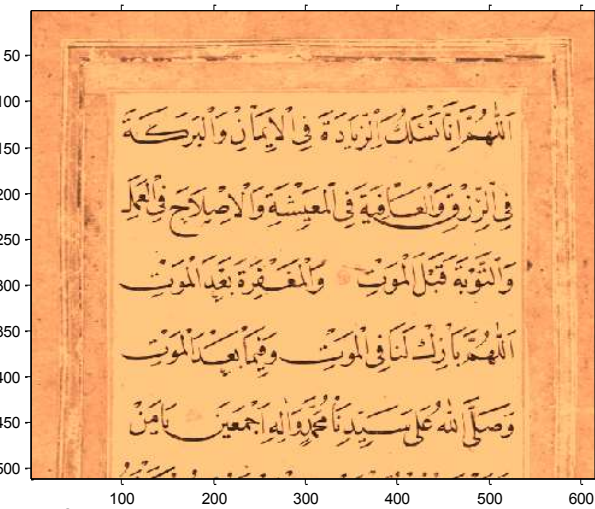 50
100
150
200
250
300
350
400
450
500
اَللّٰهُمَّ اِنَّا نَسْئَلُكَ الزِّيَادَةَ فِي الْاِيمَانِ وَالْبَرَكَةَ
فِي الرِّزْقِ وَالْعَافِيَةَ فِي الْمَعِيشَةِ وَالْاِصْلَاحَ فِي الْعَمَلِ
وَالتَّوْبَةَ قَبْلَ الْمَوْتِ وَالْمَغْفِرَةَ بَعْدَ الْمَوْتِ
اَللّٰهُمَّ بَارِكْ لَنَا فِي الْمَوْتِ وَفِيمَا بَعْدَ الْمَوْتِ
وَصَلَّى اللهُ عَلَى سَيِّدِنَا مُحَمَّدٍ وَاٰلِهِ اَجْمَعِينَ يَا مَنْ
100 200 300 400 500 600